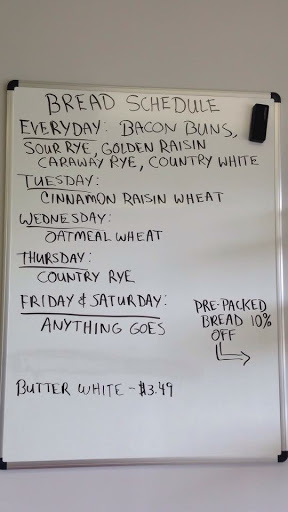 BREAD SCHEDULE
EVERYDAY: BACON BUNS,
SOUR RYE, GOLDEN RAISIN
CARAWAY RYE, COUNTRY WHITE
TUESDAY:
CINNAMON RAISIN WHEAT
WEDNESDAY:
OATMEAL WHEAT
THURSDAY:
COUNTRY RYE
FRIDAY & SATURDAY:
ANYTHING GOES
PRE-PACKED
BREAD 10%
OFF
BUTTER WHITE - $3.49